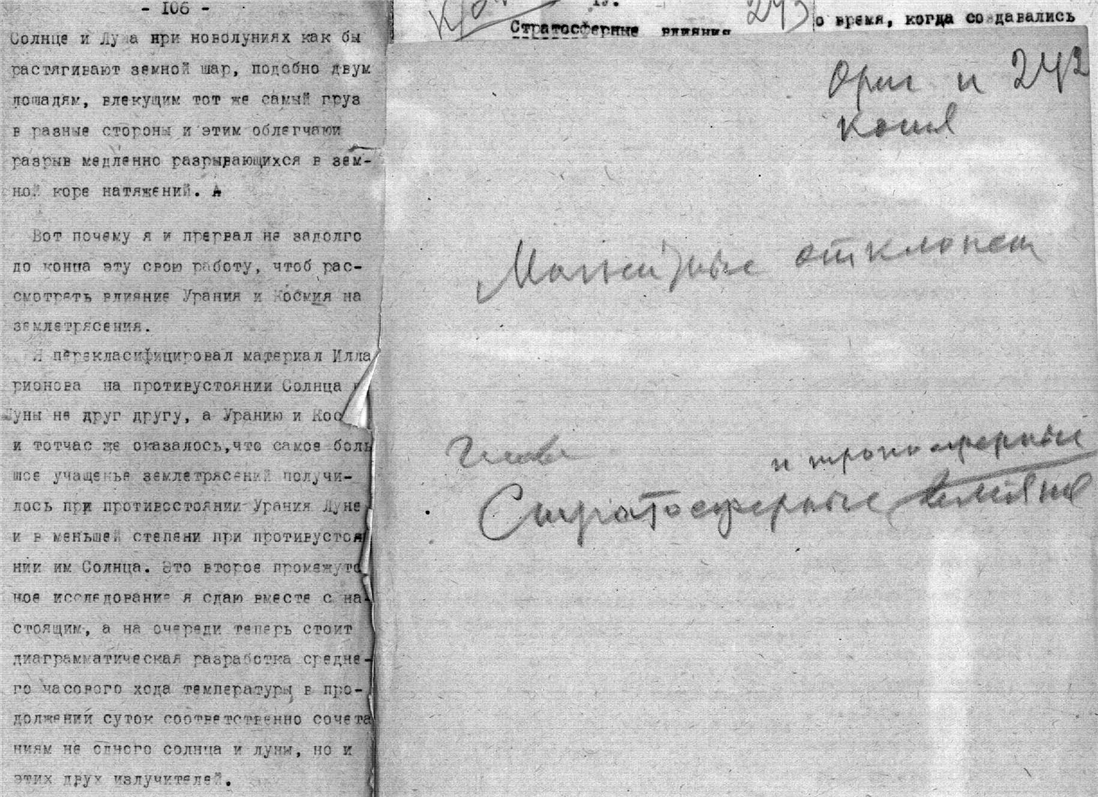 - 106 -
Солнце и Луна при новолуниях как бы
растягивают земной шар, подобно двум
лошадям, влекущим тот же самый груз
в разные стороны и этим облегчают
разрыв медленно разрывающихся в зем-
ной коре натяжений.
Вот почему я и прервал не задолго
до конца эту свою работу, чтоб рас-
смотреть влияние Урания и Космия на
землетрясения.
Я перекласифицировал материал Илла
рионова на противустоянии Солнца и
Луны не друг другу, а Уранию и Кос
и тотчас же оказалось, что самое боль
шое учащенье землетрясений получи-
лось при противостоянии Урания Луне
и в меньшей степени при противустоя
нии им Солнца. Это второе промежуто
ное исследование я сдаю вместе с на-
стоящим, а на очереди теперь стоит
диаграмматическая разработка средне-
го часового хода температуры в про-
должении суток соответственно сочета
ниям не одного солнца и луны, но и
этих двух излучителей.
19.
243
Стратосферные влияния
о время, когда создавались
Ориг и 242
копия
отклонен
Глава
и тропосферные
Стратосферные влияния